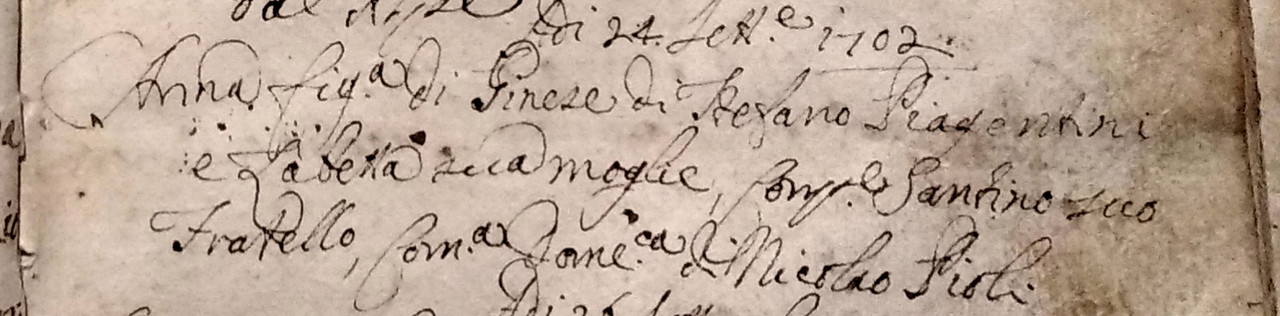 Adi 24. Sett.e 1702
Anna fig.a di Ginese di Stefano Piagentini
e Labetta sua moglie, Comp.e Santino suo
Fratello, Com.a Dome.ca di Nicolao Pioli